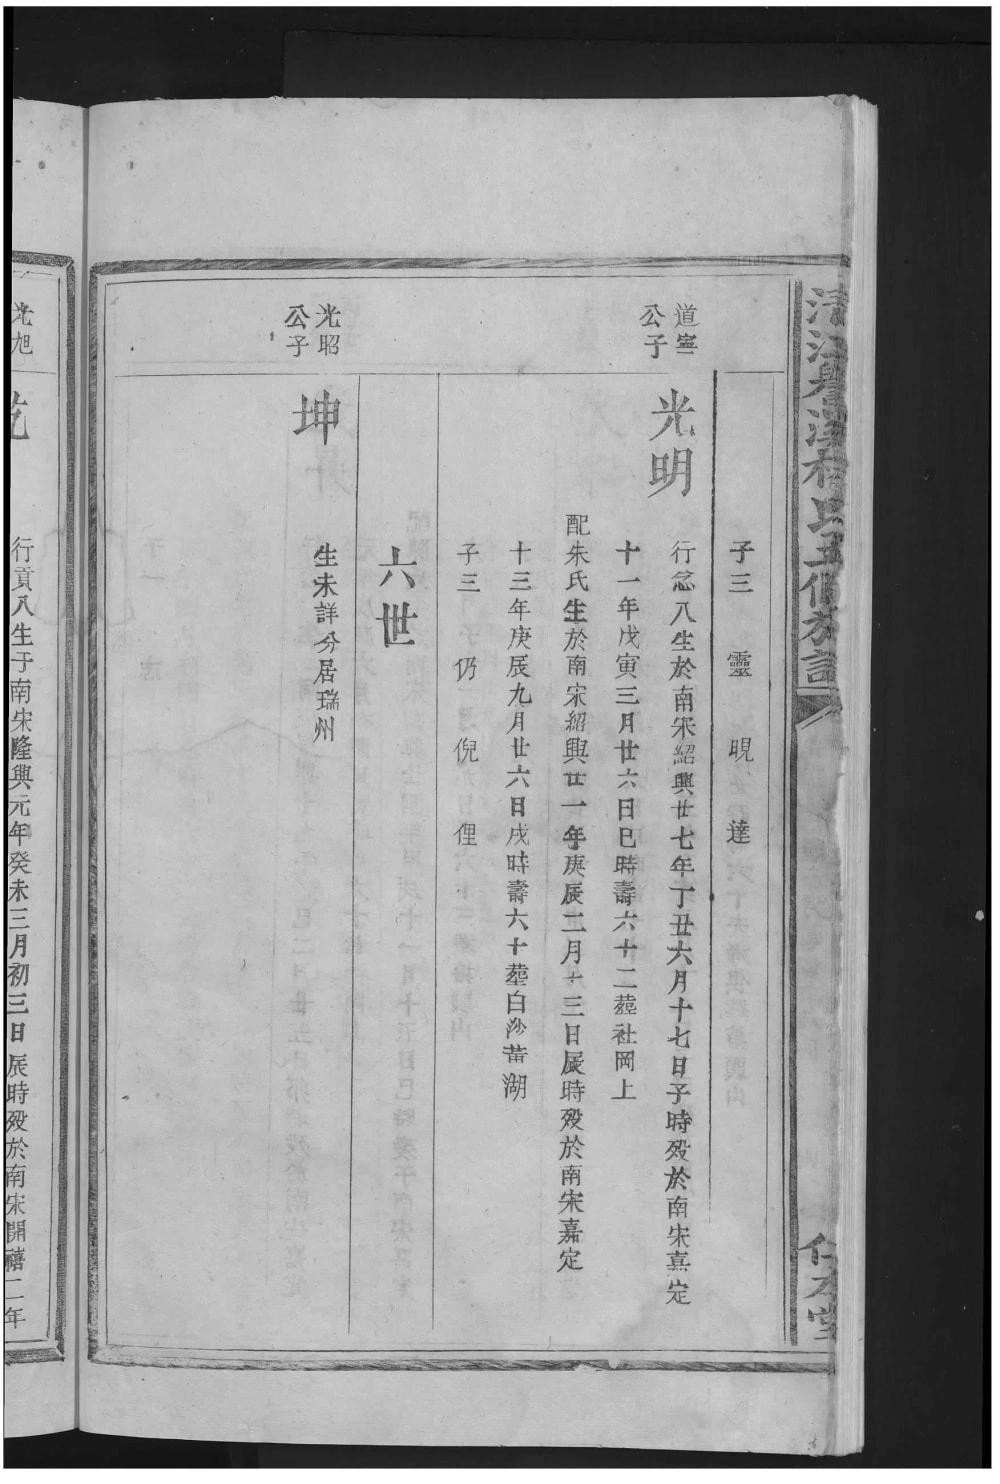 子三 靈 晛 達
道寧
公子
光明
行念八生於南宋紹興廿七年丁丑六月十七日子時殁於南宋嘉定
十一年戊寅三月廿六日巳時壽六十二塟社岡上
配朱氏生於南宋紹興廿一年庚辰二月十三日辰時殁於南宋嘉定
十三年庚辰九月廿六日戌時壽六十塟白沙黃湖
子三 仍 倪 俚
六世
光昭
公子
坤
生未詳分居瑞州
光旭
乾
行貢八生于南宋隆興元年癸未三月初三日辰時殁於南宋開禧二年